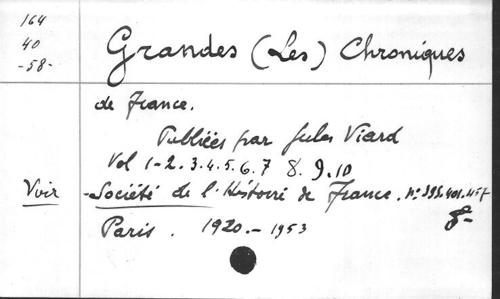 164
40
-58-
Grandes (Les) Chroniques
de France.
Publiées par Jules Viard
Vol 1-2.3.4.5.6.7 8.9.10
Voir -Société de l'Histoire de France. N° 395.401.457
8°-
Paris. 1920.-1953